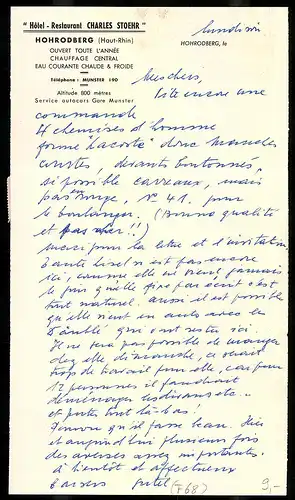 " Hôtel - Restaurant CHARLES STOEHR "
HOHRODBERG (Haut-Rhin)
OUVERT TOUTE L'ANNÉE
CHAUFFAGE CENTRAL
EAU COURANTE CHAUDE & FROIDE
Téléphone : MUNSTER 190
Altitude 800 mètres
Service autocars Gare Munster
Lundi soir
HOHRODBERG, le
Mes chers,
Vite encore une
commande
4 chemises d'homme
forme "Lacoste" donc manches
courtes devants boutonnés,
si possible carreaux, mais
pas rouge, N° 41. pour
le boulanger. (Bonne qualité
et pas cher!!)
merci pour la lettre et l'invitation
Tante Lisel n'est pas encore
ici, comme elle ne vient jamais
le jour qu'elle fixe par écrit c'est
tout naturel. aussi il est possible
qu'elle vient en auto avec les
que ont restés ici.
Il ne sera pas possible de manger
chez elle dimanche, ce serait
trop de travail pour elle, car pour
12 personnes il faudrait
déménager
et puis tout là-bas!
qu'il fasse beau. Hier
et aujourd'hui plusieurs fois
des averses assez importantes.
à bientôt et affectueux
baisers
(F68) 9,-